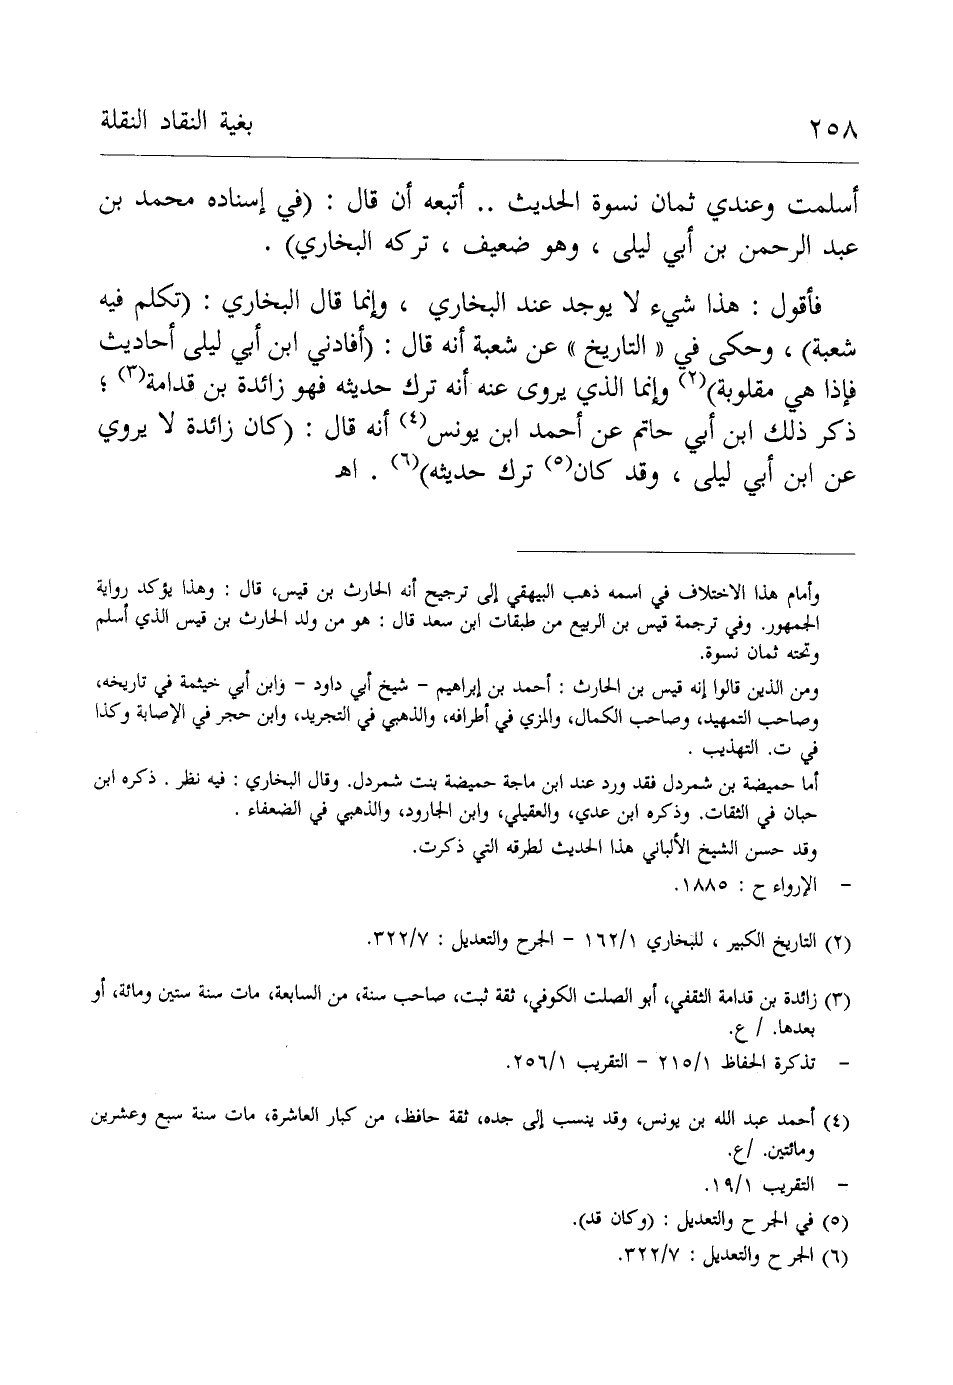 ٢٥٨
بغية النقاد النقلة
أسلمت وعندي ثمان نسوة الحديث .. أتبعه أن قال : (في إسناده محمد بن
عبد الرحمن بن أبي ليلى ، وهو ضعيف ، تركه البخاري) .
فأقول : هذا شيء لا يوجد عند البخاري ، وإنما قال البخاري : (تكلم فيه
شعبة) ، وحكى في « التاريخ » عن شعبة أنه قال : (أفادني ابن أبي ليلى أحاديث
فإذا هي مقلوبة)(٢) وإنما الذي يروى عنه أنه ترك حديثه فهو زائدة بن قدامة(٣) ؛
ذكر ذلك ابن أبي حاتم عن أحمد ابن يونس(٤) أنه قال : (كان زائدة لا يروي
عن ابن أبي ليلى ، وقد كان(٥) ترك حديثه)(٦) . اهـ
وأمام هذا الاختلاف في اسمه ذهب البيهقي إلى ترجيح أنه الحارث بن قيس، قال : وهذا يؤكد رواية
الجمهور. وفي ترجمة قيس بن الربيع من طبقات ابن سعد قال : هو من ولد الحارث بن قيس الذي أسلم
وتحته ثمان نسوة.
ومن الذين قالوا إنه قيس بن الحارث : أحمد بن إبراهيم – شيخ أبي داود – وابن أبي خيثمة في تاريخه،
وصاحب التمهيد، وصاحب الكمال، والمزي في أطرافه، والذهبي في التجريد، وابن حجر في الإصابة وكذا
في ت. التهذيب .
أما حميضة بن شمردل فقد ورد عند ابن ماجة حميضة بنت شمردل. وقال البخاري : فيه نظر . ذكره ابن
حبان في الثقات. وذكره ابن عدي، والعقيلي، وابن الجارود، والذهبي في الضعفاء .
وقد حسن الشيخ الألباني هذا الحديث لطرقه التي ذكرت.
– الإرواء ح : ١٨٨٥.
(٢) التاريخ الكبير ، للبخاري ١/١٦٢ – الجرح والتعديل : ٣٢٢/٧.
(٣) زائدة بن قدامة الثقفي، أبو الصلت الكوفي، ثقة ثبت، صاحب سنة، من السابعة، مات سنة ستين ومائة، أو
بعدها. / ع.
– تذكرة الحفاظ ٢١٥/١ – التقريب ٢٥٦/١.
(٤) أحمد عبد الله بن يونس، وقد ينسب إلى جده، ثقة حافظ، من كبار العاشرة، مات سنة سبع وعشرين
ومائتين. /ع.
– التقريب ١٩/١.
(٥) في الجر ح والتعديل : (وكان قد).
(٦) الجر ح والتعديل : ٣٢٢/٧.